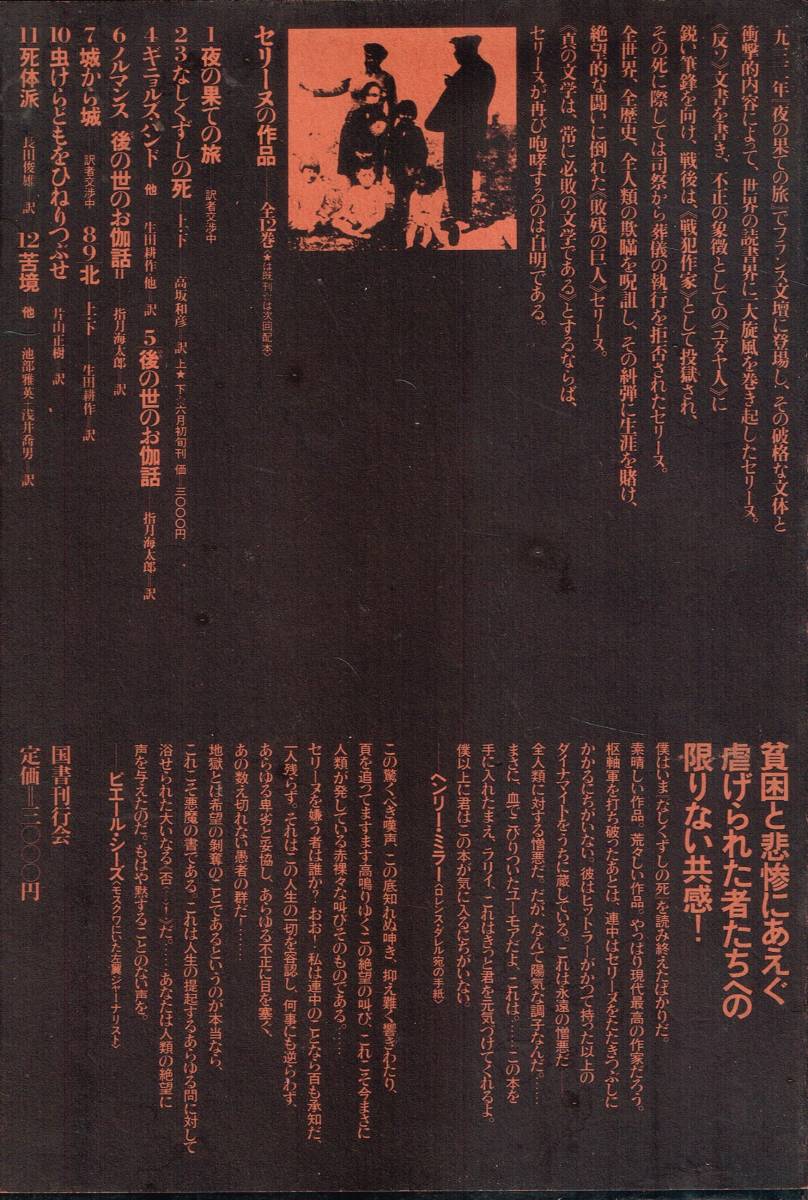 一九三二年『夜の果ての旅』でフランス文壇に登場し、その破格な文体と
衝撃的内容によって、世界の読書界に一大旋風を巻き起したセリーヌ。
《反ユ》文書を書き、不正の象徴としての《ユダヤ人》に
鋭い筆鋒を向け、戦後は、《戦犯作家》として投獄され、
その死に際しては司祭から葬儀の執行を拒否されたセリーヌ。
全世界、全歴史、全人類の欺瞞を呪詛し、その糾弾に生涯を賭け、
絶望的な闘いに倒れた《敗残の巨人》セリーヌ。
《真の文学は、常に必敗の文学である》とするならば、
セリーヌが再び咆哮するのは自明である。
セリーヌの作品――全12巻(★は既刊☆は次回配本)
1夜の果ての旅 訳者交渉中
2 3なしくずしの死 上・下――高坂和彦=訳 上★ 下☆六月初旬刊 価=三〇〇〇円
4ギニョルズ・バンド 他――生田耕作他=訳 5後の世のお伽話――指月海太郎=訳
6ノルマンス 後の世のお伽話Ⅱ――指月海太郎=訳
7城から城――訳者交渉中 8 9北 上・下――生田耕作=訳
10虫けらどもをひねりつぶせ――片山正樹=訳
11死体派――長田俊雄=訳 12苦境 他――池部雅英・浅井喬男=訳
貧困と悲惨にあえぐ
虐げられた者たちへの
限りない共感!
僕はいま『なしくずしの死』を読み終えたばかりだ。
素晴しい作品、荒々しい作品。やっぱり現代最高の作家だろう。
枢軸軍を打ち破ったあとは、連中はセリーヌをたたきつぶしに
かかるにちがいない。彼はヒットラーがかつて持った以上の
ダイナマイトをうちに蔵している。これは永遠の憎悪だ――
全人類に対する憎悪だ。だが、なんて陽気な調子なんだ。……
まさに、血でこびりついたユーモアだよ、これは……この本を
手に入れたまえ、ラリイ、これはきっと君を元気づけてくれるよ。
僕以上に君はこの本が気に入るにちがいない。
――ヘンリー・ミラー〈ロレンス・ダレル宛の手紙〉
この驚くべき嘆声、この底知れぬ呻き、抑え難く響きわたり、
頁を追ってますます高鳴りゆくこの絶望の叫び、これこそ今まさに
人類が発している赤裸々な叫びそのものである。……
セリーヌを嫌う者は誰か? おお! 私は連中のことなら百も承知だ、
一人残らず。それはこの人生の一切を容認し、何事にも逆らわず、
あらゆる卑劣と妥協し、あらゆる不正に目を塞ぐ、
あの数え切れない愚者の群だ!……
地獄とは希望の剥奪のことであるというのが本当なら、
これこそ悪魔の書である。これは人生の提起するあらゆる問に対して
浴せられた大いなる〈否……!〉だ。……あなたは人類の絶望に
声を与えたのだ。もはや黙することのない声を。
――ピエール・シーズ〈モスクワにいた左翼ジャーナリスト〉
国書刊行会
定価=三〇〇〇円